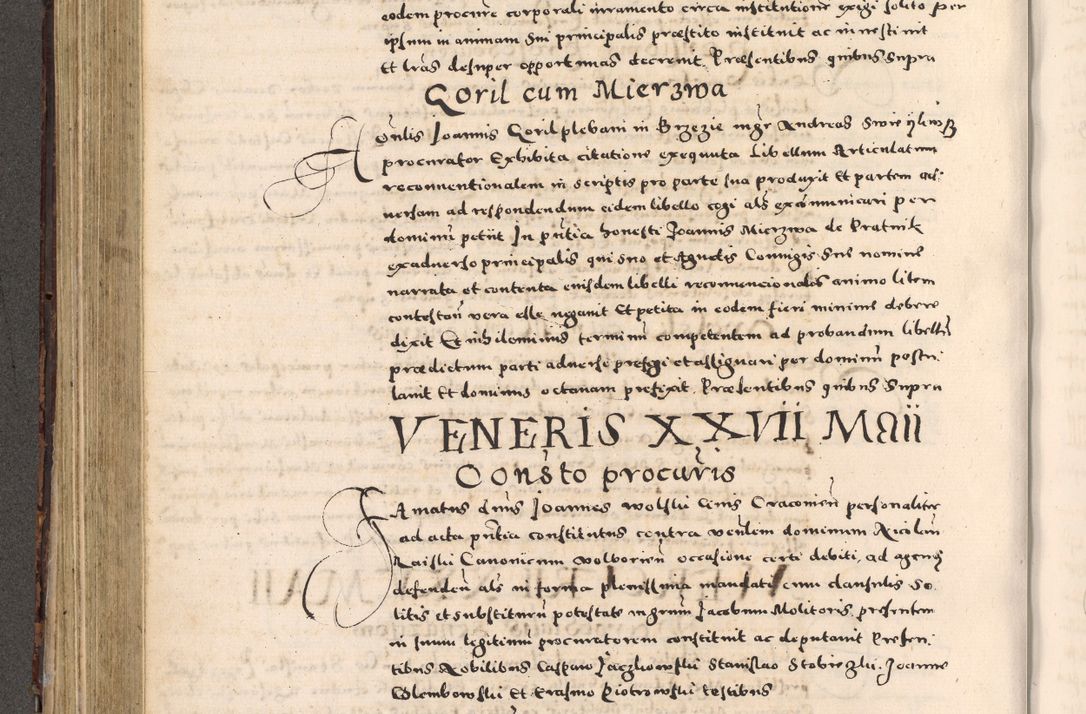 eodem procure corporali iuramento circa institutione exigi solito per
ipsum in animam sui principalis præstito instituit ac investivit
Et lras desuper opportunas decrevit. Præsentibus quibus supra
Goril cum Mierzwa
Honlis Joannis Goril plebani in Brzezie mgr Andreas
procurator Exhibita citatione exequuta Libellum Articulatum
reconventionalem in scriptis pro parte sua produxit Et partem ad
versam ad respondendum eidem libello cogi als excōmunicari per
dominū petiit In pntia honesti Joannis Mierzwa de Pratnik
exadverso principalis qui suo et Agnetis Coniugis suæ nomine
narrata et contenta eiusdem libelli reconvencionalis animo litem
contestan vera esse negavit Et petita in eodem fieri minime debere
dixit Et nihilominus terminū competentem ad probandum libellū
prædictum parti adversæ præfigi et assignari per dominū postu
lavit Et dominus octavam præfixit. Præsentibus quibus supra
VENERIS XXVII Maii
Consto procuris
Famatus dnus Joannes wolski civis Cracovien personaliter
ad acta pntia constitutus contra venlem dominum Nicolaū
Raiski Canonicum wolborien occasione certi debiti, ad agend
defendendū als in forma plenissima mandati cum clausulis so
litis et substituen potestate ingenuū Jacobum Molitoris præsentem
in suum legitimū procuratorem constituit ac deputavit Præsen
tibus Nobilibus Casparo Stanislao Joanne
Golembowski Et Erasmo Piotrowski testibus